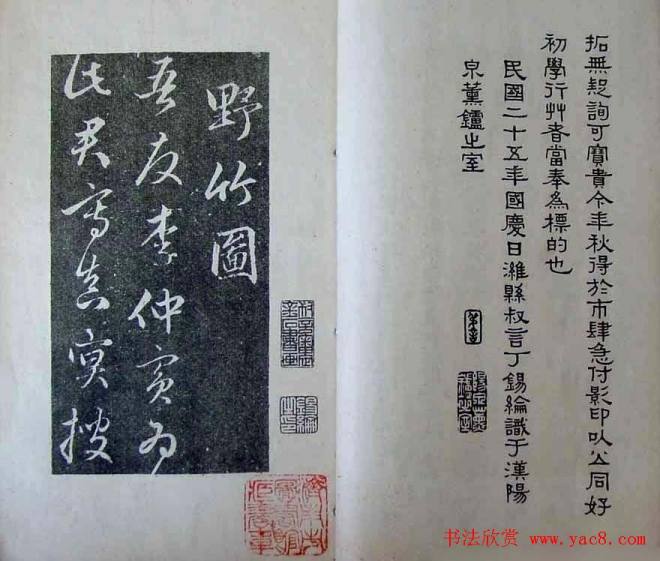 拓無疑詢可寶貴今年秋得於市肆急付影印以公同好
初學行艸者當奉為標的也
民國二十五年國慶日濰縣叔言丁錫綸識于漢陽
泉薰鑪之室
野竹圖
吾友李仲賓為
此君寫真冥搜
书法欣赏 www.yac8.com